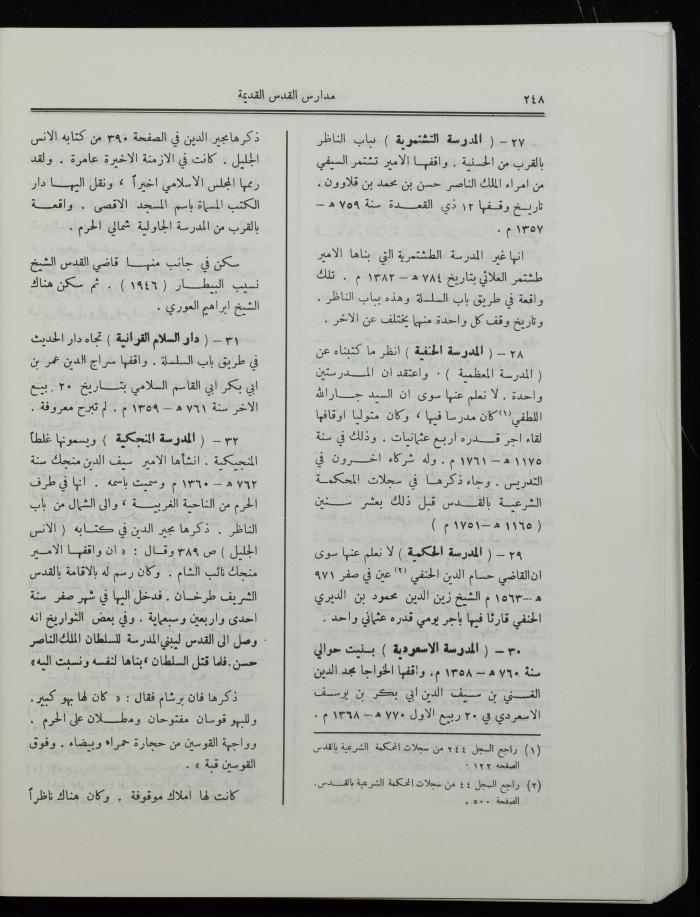 ٢٤٨
مدارس القدس القديمة
٢٧ – ( المدرسة التشتمرية ) بباب الناظر
بالقرب من الحسنية . واقفها الامير تشتمر السيفي
من امراء الملك الناصر حسن بن محمد بن قلاوون .
تاريخ وقفها ١٢ ذي القعدة سنة ٧٥٩ هـ –
١٣٥٧ م .
انها غير المدرسة الطشتمرية التي بناها الامير
طشتمر العلائي بتاريخ ٧٨٤ هـ – ١٣٨٢ م . تلك
واقعة في طريق باب السلسلة وهذه بباب الناظر .
وتاريخ وقف كل واحدة منهما يختلف عن الاخر .
٢٨ – ( المدرسة الحنفية ) انظر ما كتبناه عن
( المدرسة المعظمية ) . واعتقد ان المدرستين
واحدة . لا نعلم عنها سوى ان السيد جار الله
اللطفي (١) كان مدرسا فيها ، وكان متوليا اوقافها
لقاء اجر قدره اربع عثمانيات . وذلك في سنة
١١٧٥ هـ – ١٧٦١ م . وله شركاء اخرون في
التدريس . وجاء ذكرها في سجلات المحكمة
الشرعية بالقدس قبل ذلك بعشر سنين
( ١١٦٥ هـ – ١٧٥١ م )
٢٩ – ( المدرسة الحكمية ) لا نعلم عنها سوى
ان القاضي حسام الدين الحنفي (٢) عين في صفر ٩٧١
هـ – ١٥٦٣ م الشيخ زين الدين محمود بن الديري
الحنفي قارئا فيها باجر يومي قدره عثماني واحد .
٣٠ – ( المدرسة الاسعردية ) بنيت حوالي
سنة ٧٦٠ هـ – ١٣٥٨ م . واقفها الخواجا مجد الدين
الغني بن سيف الدين ابي بكر بن يوسف
الاسعردي في ٢٠ ربيع الاول ٧٧٠ هـ – ١٣٦٨ م .
(١) راجع السجل ٢٤٤ من سجلات المحكمة الشرعية بالقدس
الصفحة ١٢٢ .
(٢) راجع السجل ٤٤ من سجلات المحكمة الشرعية بالقدس .
الصفحة ٥٠٠ .
ذكرها مجير الدين في الصفحة ٣٩٠ من كتابه الانس
الجليل . كانت في الازمنة الاخيرة عامرة . ولقد
رمها المجلس الاسلامي اخيراً ، ونقل اليها دار
الكتب المسماة باسم المسجد الاقصى . واقعة
بالقرب من المدرسة الجاولية شمالي الحرم .
سكن في جانب منها قاضي القدس الشيخ
نسيب البيطار ( ١٩٤٦ ) . ثم سكن هناك
الشيخ ابراهيم العوري .
٣١ – ( دار السلام القرانية ) تجاه دار الحديث
في طريق باب السلسلة . واقفها سراج الدين عمر بن
ابي بكر ابي القاسم السلامي بتاريخ ٢٠ ربيع
الاخر سنة ٧٦١ هـ – ١٣٥٩ م . لم تبرح معروفة .
٣٢ – ( المدرسة المنجكية ) ويسمونها غلطاً
المنجيكية . انشأها الامير سيف الدين منجك سنة
٧٦٢ هـ – ١٣٦٠ م وسميت باسمه . انها في طرف
الحرم من الناحية الغربية ، والى الشمال من باب
الناظر . ذكرها مجير الدين في كتابه ( الانس
الجليل ) ص ٣٨٩ وقال : « ان واقفها الامير
منجك نائب الشام . وكان رسم له بالاقامة بالقدس
الشريف طرخان . فدخل اليها في شهر صفر سنة
احدى واربعين وسبعماية . وفي بعض التواريخ انه
وصل الى القدس ليبني المدرسة للسلطان الملك الناصر
حسن . فلما قتل السلطان ، بناها لنفسه ونسبت اليه »
ذكرها فان برشام فقال : « كان لها بهو كبير .
وللبهو قوسان مفتوحان ومطلان على الحرم .
وواجهة القوسين من حجارة حمراء وبيضاء . وفوق
القوسين قبة » .
كانت لها املاك موقوفة . وكان هناك ناظراً